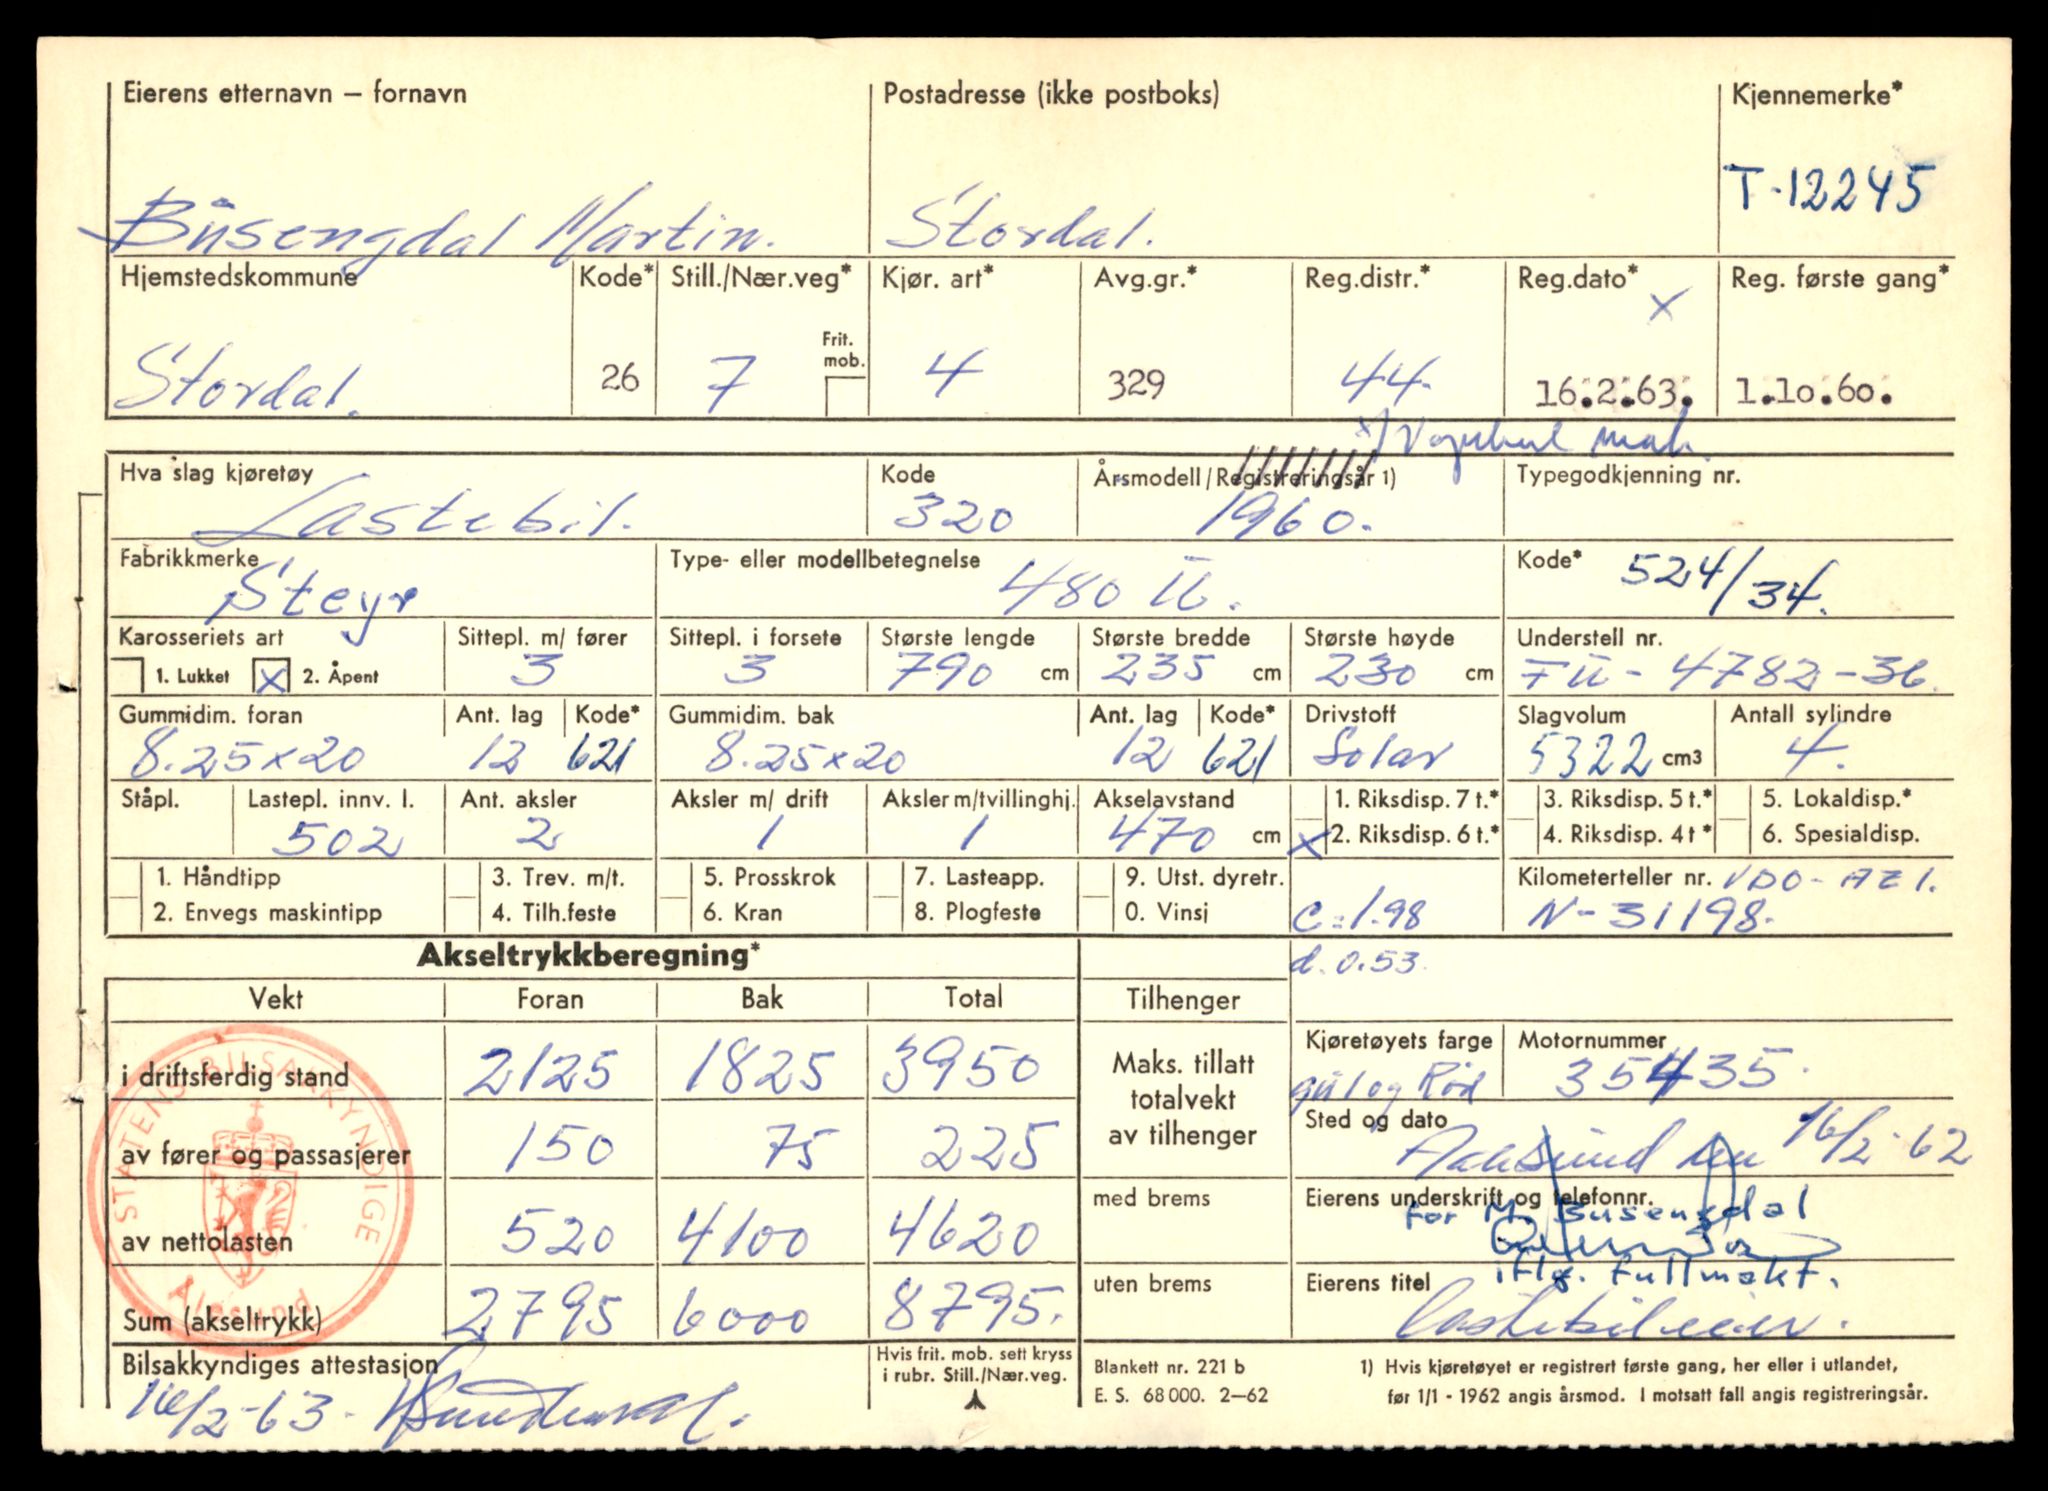 Eierens etternavn – fornavn Postadresse (ikke postboks) Kjennemerke*
Busengdal Martin. Stordal. T-12245
Hjemstedskommune Kode* Still./Nær.veg* Kjør. art* Avg.gr.* Reg.distr.* Reg.dato* Reg. første gang*
x
Frit. mob.
Stordal. 26 7 4 329 44. 16.2.63. 1.10.60.
x)
Hva slag kjøretøy Kode Årsmodell/Registreringsår 1) Typegodkjenning nr.
Lastebil. 320 1960.
Fabrikkmerke Type- eller modellbetegnelse Kode*
Steyr 480 U. 524/34.
Karosseriets art Sittepl. m/ fører Sittepl. i forsete Største lengde Største bredde Største høyde Understell nr.
1. Lukket x 2. Åpent 3 3 790 cm 235 cm 230 cm FU-4782-36.
Gummidim. foran Ant. lag Kode* Gummidim. bak Ant. lag Kode* Drivstoff Slagvolum Antall sylindre
8.25x20 12 621 8.25x20 12 621 Solar 5322 cm3 4.
Ståpl. Lastepl. innv. l. Ant. aksler Aksler m/ drift Aksler m/tvillinghj. Akselavstand 1. Riksdisp. 7 t.* 3. Riksdisp. 5 t.* 5. Lokaldisp.*
502 2 1 1 470 cm x 2. Riksdisp. 6 t.* 4. Riksdisp. 4 t* 6. Spesialdisp.
1. Håndtipp 3. Trev. m/t. 5. Prosskrok 7. Lasteapp. 9. Utst. dyretr. Kilometerteller nr. VDO-AZ1.
2. Envegs maskintipp 4. Tilh.feste 6. Kran 8. Plogfeste 0. Vinsj c=1.98 N-31198.
Akseltrykkberegning* d. 0.53.
Vekt Foran Bak Total Tilhenger
i driftsferdig stand 2125 1825 3950 Maks. tillatt totalvekt av tilhenger
Kjøretøyets farge Motornummer
gul og Rød 35435.
av fører og passasjerer 150 75 225
Sted og dato
Aalesund den 16/2-62
av nettolasten 520 4100 4620 med brems
Eierens underskrift og telefonnr.
for M. Busengdal
iflg. fullmakt.
Sum (akseltrykk) 2795 6000 8795. uten brems
Eierens titel
Lastebileier.
STATENS BILSAKKYNDIGE
Ålesund
Bilsakkyndiges attestasjon
16/2-63.
Hvis frit. mob. sett kryss
i rubr. Still./Nær.veg.
Blankett nr. 221 b
E. S. 68 000. 2–62
1) Hvis kjøretøyet er registrert første gang, her eller i utlandet,
før 1/1 - 1962 angis årsmod. I motsatt fall angis registreringsår.